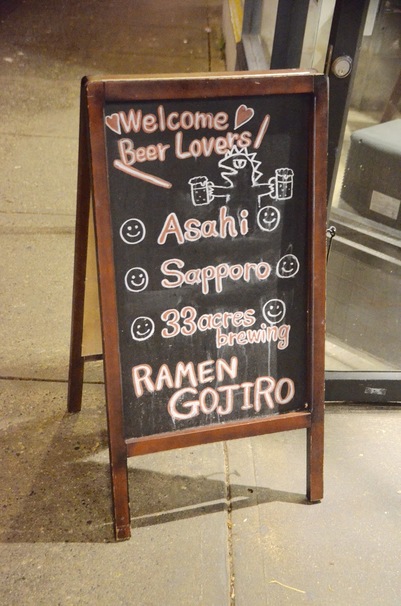 Welcome
Beer Lovers
Asahi
Sapporo
33acres
brewing
RAMEN
GOJIRO